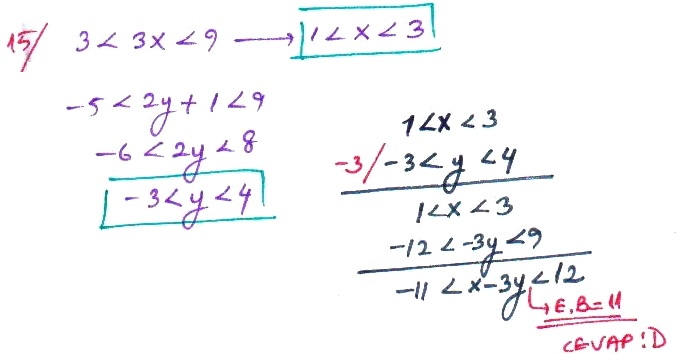 15/ 3 < 3x < 9 → 1 < x < 3
-5 < 2y + 1 < 9
-6 < 2y < 8
-3 < y < 4
1 < x < 3
-3/ -3 < y < 4
1 < x < 3
-12 < -3y < 9
-11 < x - 3y < 12
↳ E.B = 11
CEVAP: D